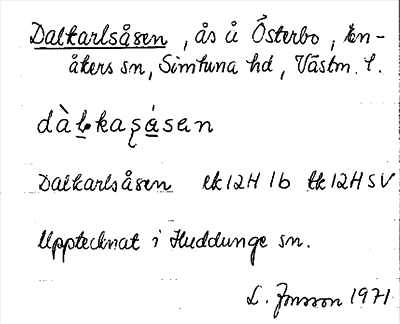 Dalkarlsåsen, ås å Österbo, En-
åkers sn, Simtuna hd, Västm. l.
dàḷkaʂásen
Dalkarlsåsen ek 12H 1b tk 12H SV
Upptecknat i Huddunge sn.
L. Jonsson 1971